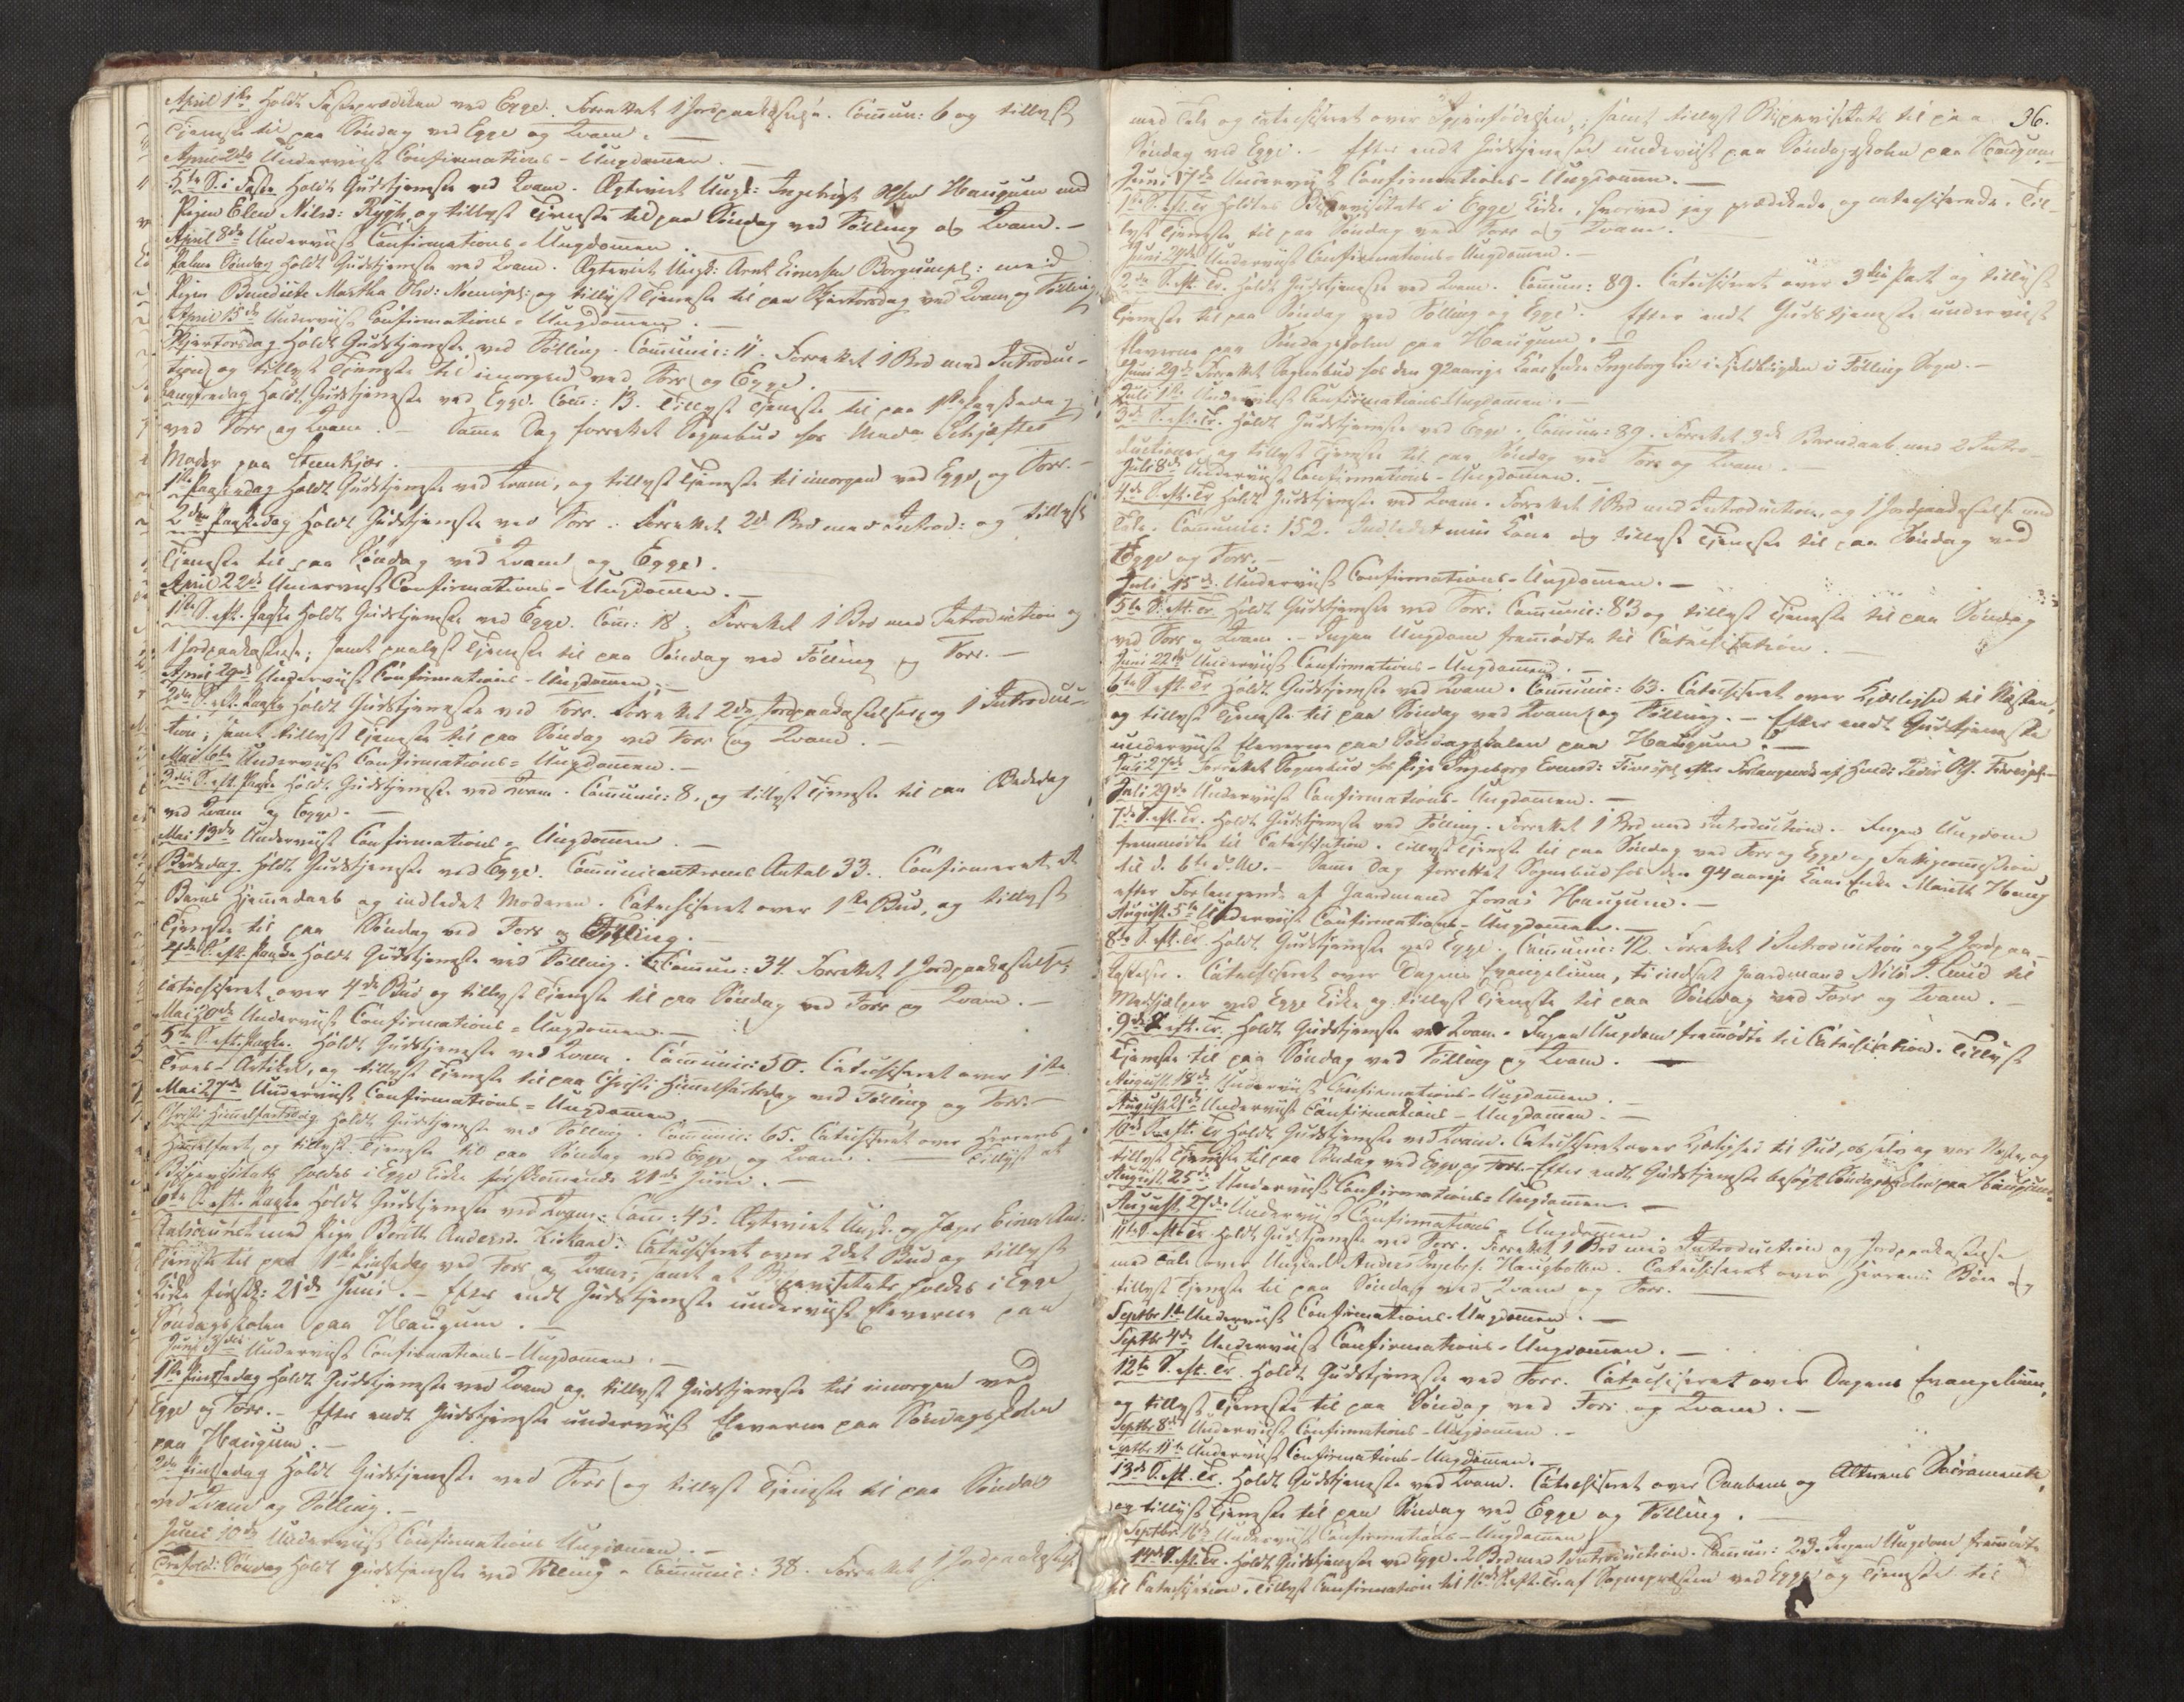 April 1ste Holdt Fasteprædiken ved Egge. Forrettet 1 Jordpaakastelse. Com̅un: 6 og tillyst
Tjeneste til paa Søndag ved Egge og Qvam. —
April 2den Underviist Confirmations-Ungdom̅en. —
5te S. i Faste Holdt Gudstjeneste ved Qvam. Ægteviet Ungk: Ingebrigt Haugum med
Pigen Elen Nilsd: Rygh, og tillyst Tjeneste til paa Søndag ved Følling og Qvam. —
April 8de Underviist Confirmations-Ungdom̅en.
Palme Søndag Holdt Gudstjeneste ved Qvam. Ægteviet Ungk: Arnt Borgumpl: med
Pigen Martha og tillyst Tjeneste til paa Skjertorsdag ved Qvam og Følling
April 15de Underviist Confirmations-Ungdom̅en. —
Skjertorsdag Holdt Gudstjeneste ved Følling. Com̅unic: 11. Forrettet 1 Brd med Introduc-
tion og tillyst Tjeneste til imorgen ved Forr og Egge.
Langfredag Holdt Gudstjeneste ved Egge. Com̅: 13. Tillyst Tjeneste til paa 1ste Paaskedag
ved Forr og Qvam. — Samme Dag forrettet Sognebud hos Mada
Moder paa Steenkjær. —
1ste Paaskedag Holdt Gudstjeneste ved Qvam, og tillyst Tjeneste til imorgen ved Egge og Forr. —
2den Paaskedag Holdt Gudstjeneste ved Forr. Forrettet 2de Brd med Introd: og tillyst
Tjeneste til paa Søndag ved Qvam og Egge.
April 22de Underviist Confirmations-Ungdom̅en. —
1ste S. eft. Paaske Holdt Gudstjeneste ved Egge. Com̅: 18. Forrettet 1 Brd med Introduction og
1 Jordpaakastelse; samt tillyst Tjeneste til paa Søndag ved Følling og Forr. —
April 29de Underviist Confirmations-Ungdom̅en. —
2den S. eft. Paaske Holdt Gudstjeneste ved Forr. Forrettet 2de Jordpaakastelser, og 1 Introduc-
tion; samt tillyst Tjeneste til paa Søndag ved Forr og Qvam. —
Mai 6te Underviist Confirmations-Ungdom̅en. —
3die S. eft. Paaske Holdt Gudstjeneste ved Qvam. Com̅unic: 8, og tillyst Tjeneste til paa Bededag
ved Qvam og Egge. —
Mai 13de Underviist Confirmations-Ungdom̅en. —
Bededag. Holdt Gudstjeneste ved Egge. Com̅unicanternes Antal 33. Confirmeret et
Barns Hjem̅edaab og indledet Moderen. Catechiseret over 1ste Bud, og tillyst
Tjeneste til paa Søndag ved Forr og Følling. —
4de S. eft. Paaske Holdt Gudstjeneste ved Følling. Com̅un: 34. Forrettet 1 Jordpaakastelse,
catechiseret over 4de Bud og tillyst Tjeneste til paa Søndag ved Forr og Qvam. —
Mai 20de Underviist Confirmations-Ungdom̅en. —
5te S. eft. Paaske. Holdt Gudstjeneste ved Qvam. Com̅unic: 50. Catechiseret over 1ste
Troes-Artikel, og tillyst Tjeneste til paa Christi Himmelfartsdag ved Følling og Forr. —
Mai 27de Underviist Confirmations-Ungdom̅en
Christi Himmelfartsdag Holdt Gudstjeneste ved Følling. Com̅unic: 65. Catechiseret over Herrens
Himmelfart, og tillyst Tjeneste til paa Søndag ved Egge og Qvam. — Tillyst at
Bispevisitats holdes i Egge Kirke førstkommende 21de Juni. —
6te S. eft. Paaske Holdt Gudstjeneste ved Qvam. Com̅: 45. Ægteviet Ungk. og Jæger Einer
med Pige Berith Andersd. Catechiseret over 2det Bud og tillyst
Tjeneste til paa 1ste Pintsedag ved Forr og Qvam; samt at Bispevisitats holdes i Egge
Kirke førstk: 21de Juni. — Efter endt Gudstjeneste underviist Eleverne paa
Søndagsskolen paa Haugum. —
Juni 3die Underviist Confirmations-Ungdom̅en. —
1ste Pintsedag Holdt Gudstjeneste ved Qvam og tillyst Gudstjeneste til imorgen ved
Egge og Forr. — Efter endt Gudstjeneste underviist Eleverne paa Søndagsskolen
paa Haugum. —
2den Pintsedag Holdt Gudstjeneste ved Forr og tillyst Tjeneste til paa Søndag
ved Qvam og Følling. —
Juni 10de Underviist Confirmations Ungdom̅en. —
Trefold: Søndag Holdt Gudstjeneste ved Følling. Com̅unic: 38. Forrettet 1 Jordpaakastelse
36.
med Tale og catechiseret over Igjenfødelsen; samt tillyst Bispevisitats til paa
Søndag ved Egge. — Efter endt Gudstjeneste underviist paa Søndagsskolen paa Haugum
Juni 17de Underviist Confirmations-Ungdom̅en. —
1ste S. eft. Tr. holdtes Bispevisitats i Egge Kirke, hvorved jeg prædikede og catechiserede. Til-
lyst Tjeneste til paa Søndag ved Forr og Qvam. —
Juni 24de Underviist Confirmations-Ungdom̅en. —
2den S. eft. Tr. Holdt Gudstjeneste ved Qvam. Com̅un: 89. Catechiseret over 3die Part og tillyst
Tjeneste til paa Søndag ved Følling og Egge. Efter endt Gudstjeneste underviist
Eleverne paa Søndagsskolen paa Haugum.
Juni 29de Forrettet Sognebud hos den 92aarige Enke Ingeborg i Følling Sogn. —
Juli 1ste Underviist Confirmations Ungdom̅en. —
3die S. eft. Tr. Holdt Gudstjeneste ved Egge. Com̅un: 89. Forrettet 3de Barnedaab med 2 Intro-
ductioner, og tillyst Tjeneste til paa Søndag ved Forr og Qvam.
Juli 8de Underviist Confirmations-Ungdom̅en. —
4de S. eft. Tr Holdt Gudstjeneste ved Qvam. Forrettet 1 Brd med Introduction, og 1 Jordpaakastelse med
Tale. Com̅unic: 152. Indledet min Kone og tillyst Tjeneste til paa Søndag ved
Egge og Forr. —
Juli 15de Underviist Confirmations-Ungdom̅en. —
5te S. eft. Tr. Holdt Gudstjeneste ved Forr. Com̅unic: 83 og tillyst Tjeneste til paa Søndag
ved Forr og Qvam. — Ingen Ungdom fremmødte til Catechisation. —
Juni 22de Underviist Confirmations-Ungdom̅en. —
6te S. eft. Tr Holdt Gudstjeneste ved Qvam. Com̅unic: 63. Catechiseret over Kjerlighed til Næsten,
og tillyst Tjeneste til paa Søndag ved Qvam og Følling. — Efter endt Gudstjeneste
underviist Eleverne paa Søndagsskolen paa Haugum. —
Juli 27de Forrettet Sognebud hos Pige Ingeborg efter Forlangende af
Juli 29de Underviist Confirmations-Ungdom̅en. —
7de S. eft. Tr. Holdt Gudstjeneste ved Følling. Forrettet 1 Brd med Introduction. — Ingen Ungdom
fremmødte til Catechisation. Tillyst Tjeneste til paa Søndag ved Forr og Egge og Fattigcommission
til d. 6te d. M. — Samme Dag forrettet Sognebud hos den 94aarige Enke Marith Haug
efter Forlangende af Gaardmand Jonas Haugum. —
August 5te Underviist Confirmations-Ungdom̅en. —
8de S. eft. Tr. Holdt Gudstjeneste ved Egge. Com̅unic: 42. Forrettet 1 Introduction og 2 Jordpaa-
kastelser. Catechiseret over Dagens Evangelium, indsat Gaardmand Nils til
Medhjælper ved Egge Kirke og tillyst Tjeneste til paa Søndag ved Forr og Qvam. —
9de S. eft. Tr. Holdt Gudstjeneste ved Qvam. Ingen Ungdom fremmødte til Catechisation. Tillyst
Tjeneste til paa Søndag ved Følling og Qvam. —
August 18de Underviist Confirmations-Ungdom̅en. —
August 21de Underviist Confirmations-Ungdom̅en. —
10de S. eft. Tr Holdt Gudstjeneste ved Qvam. Catechiseret over Kjærlighed til Gud, os selv og vor Næste, og
tillyst Tjeneste til paa Søndag ved Egge og Forr. — Efter endt Gudstjeneste besøgt Søndagsskolen paa Haugum.
August 25de Underviist Confirmations-Ungdom̅en. —
August 27de Underviist Confirmations-Ungdom̅en.
11te S. eft. Tr. Holdt Gudstjeneste ved Forr. Forrettet 1 Brd med Introduction og Jordpaakastelse
med Tale over Ungkarl Anders Catechiseret over Herrens Bøn og
tillyst Tjeneste til paa Søndag ved Qvam og Forr. —
Septbr 1te Underviist Confirmations-Ungdom̅en. —
Septbr 4de Underviist Confirmations-Ungdom̅en. —
12te S. eft. Tr. Holdt Gudstjeneste ved Forr. Catechiseret over Dagens Evangelium,
og tillyst Tjeneste til paa Søndag ved Forr og Qvam. —
Septbr 8de Underviist Confirmations-Ungdom̅en. —
Septbr 11te Underviist Confirmations-Ungdom̅en. —
13de S. eft. Tr. Holdt Gudstjeneste ved Qvam. Catechiseret over Daabens og Alterens Sacramente,
og tillyst Tjeneste til paa Søndag ved Egge og Følling. —
Septbr 16de Underviist Confirmations-Ungdom̅en
14de S. eft. Tr. Holdt Gudstjeneste ved Egge. 2 Brd med 1 Introduction. Com̅un: 23. Ingen Ungdom fremmødte
til Catechisation. Tillyst Confirmation til 16de S. eft. Tr. af Sognepræsten ved Egge og Tjeneste til